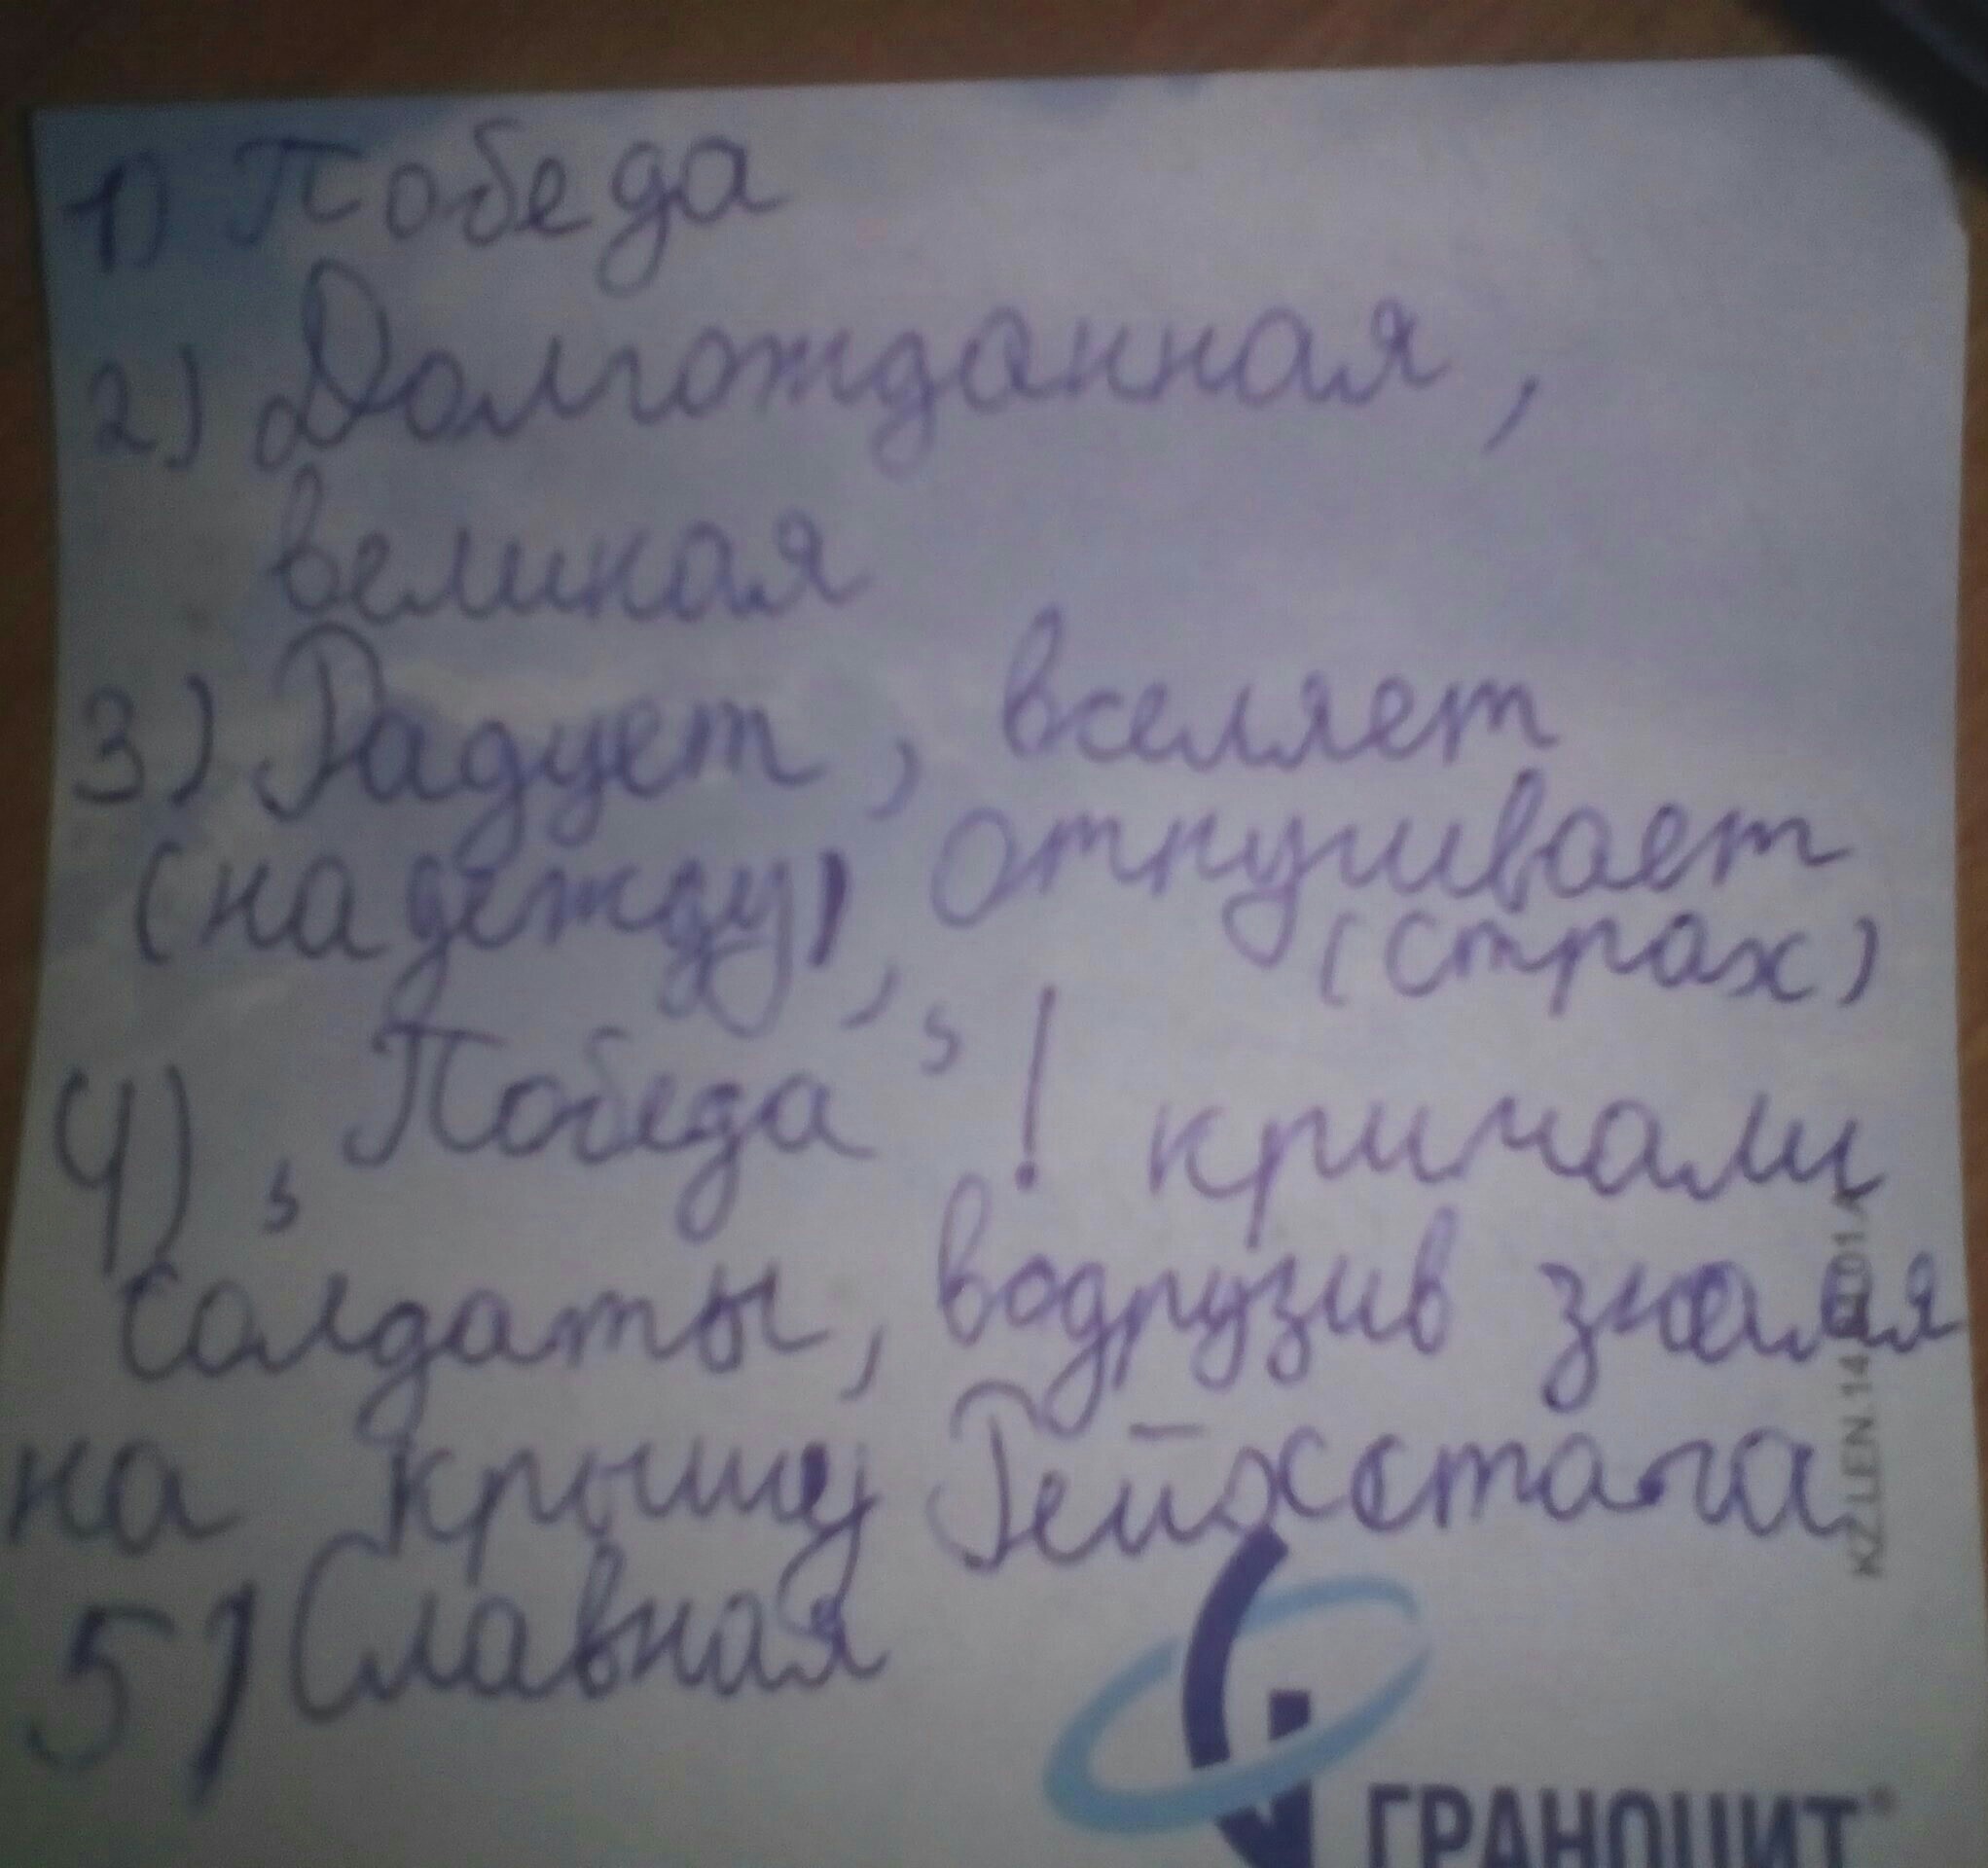 1) Победа
2) Долгожданная,
великая
3) Радует, вселяет
(надежду), отпугивает
(страх)
4) "Победа"! кричали
солдаты, водрузив знамя
на крышу Рейхстага
5) Славная
ГРАНОЦИТ®